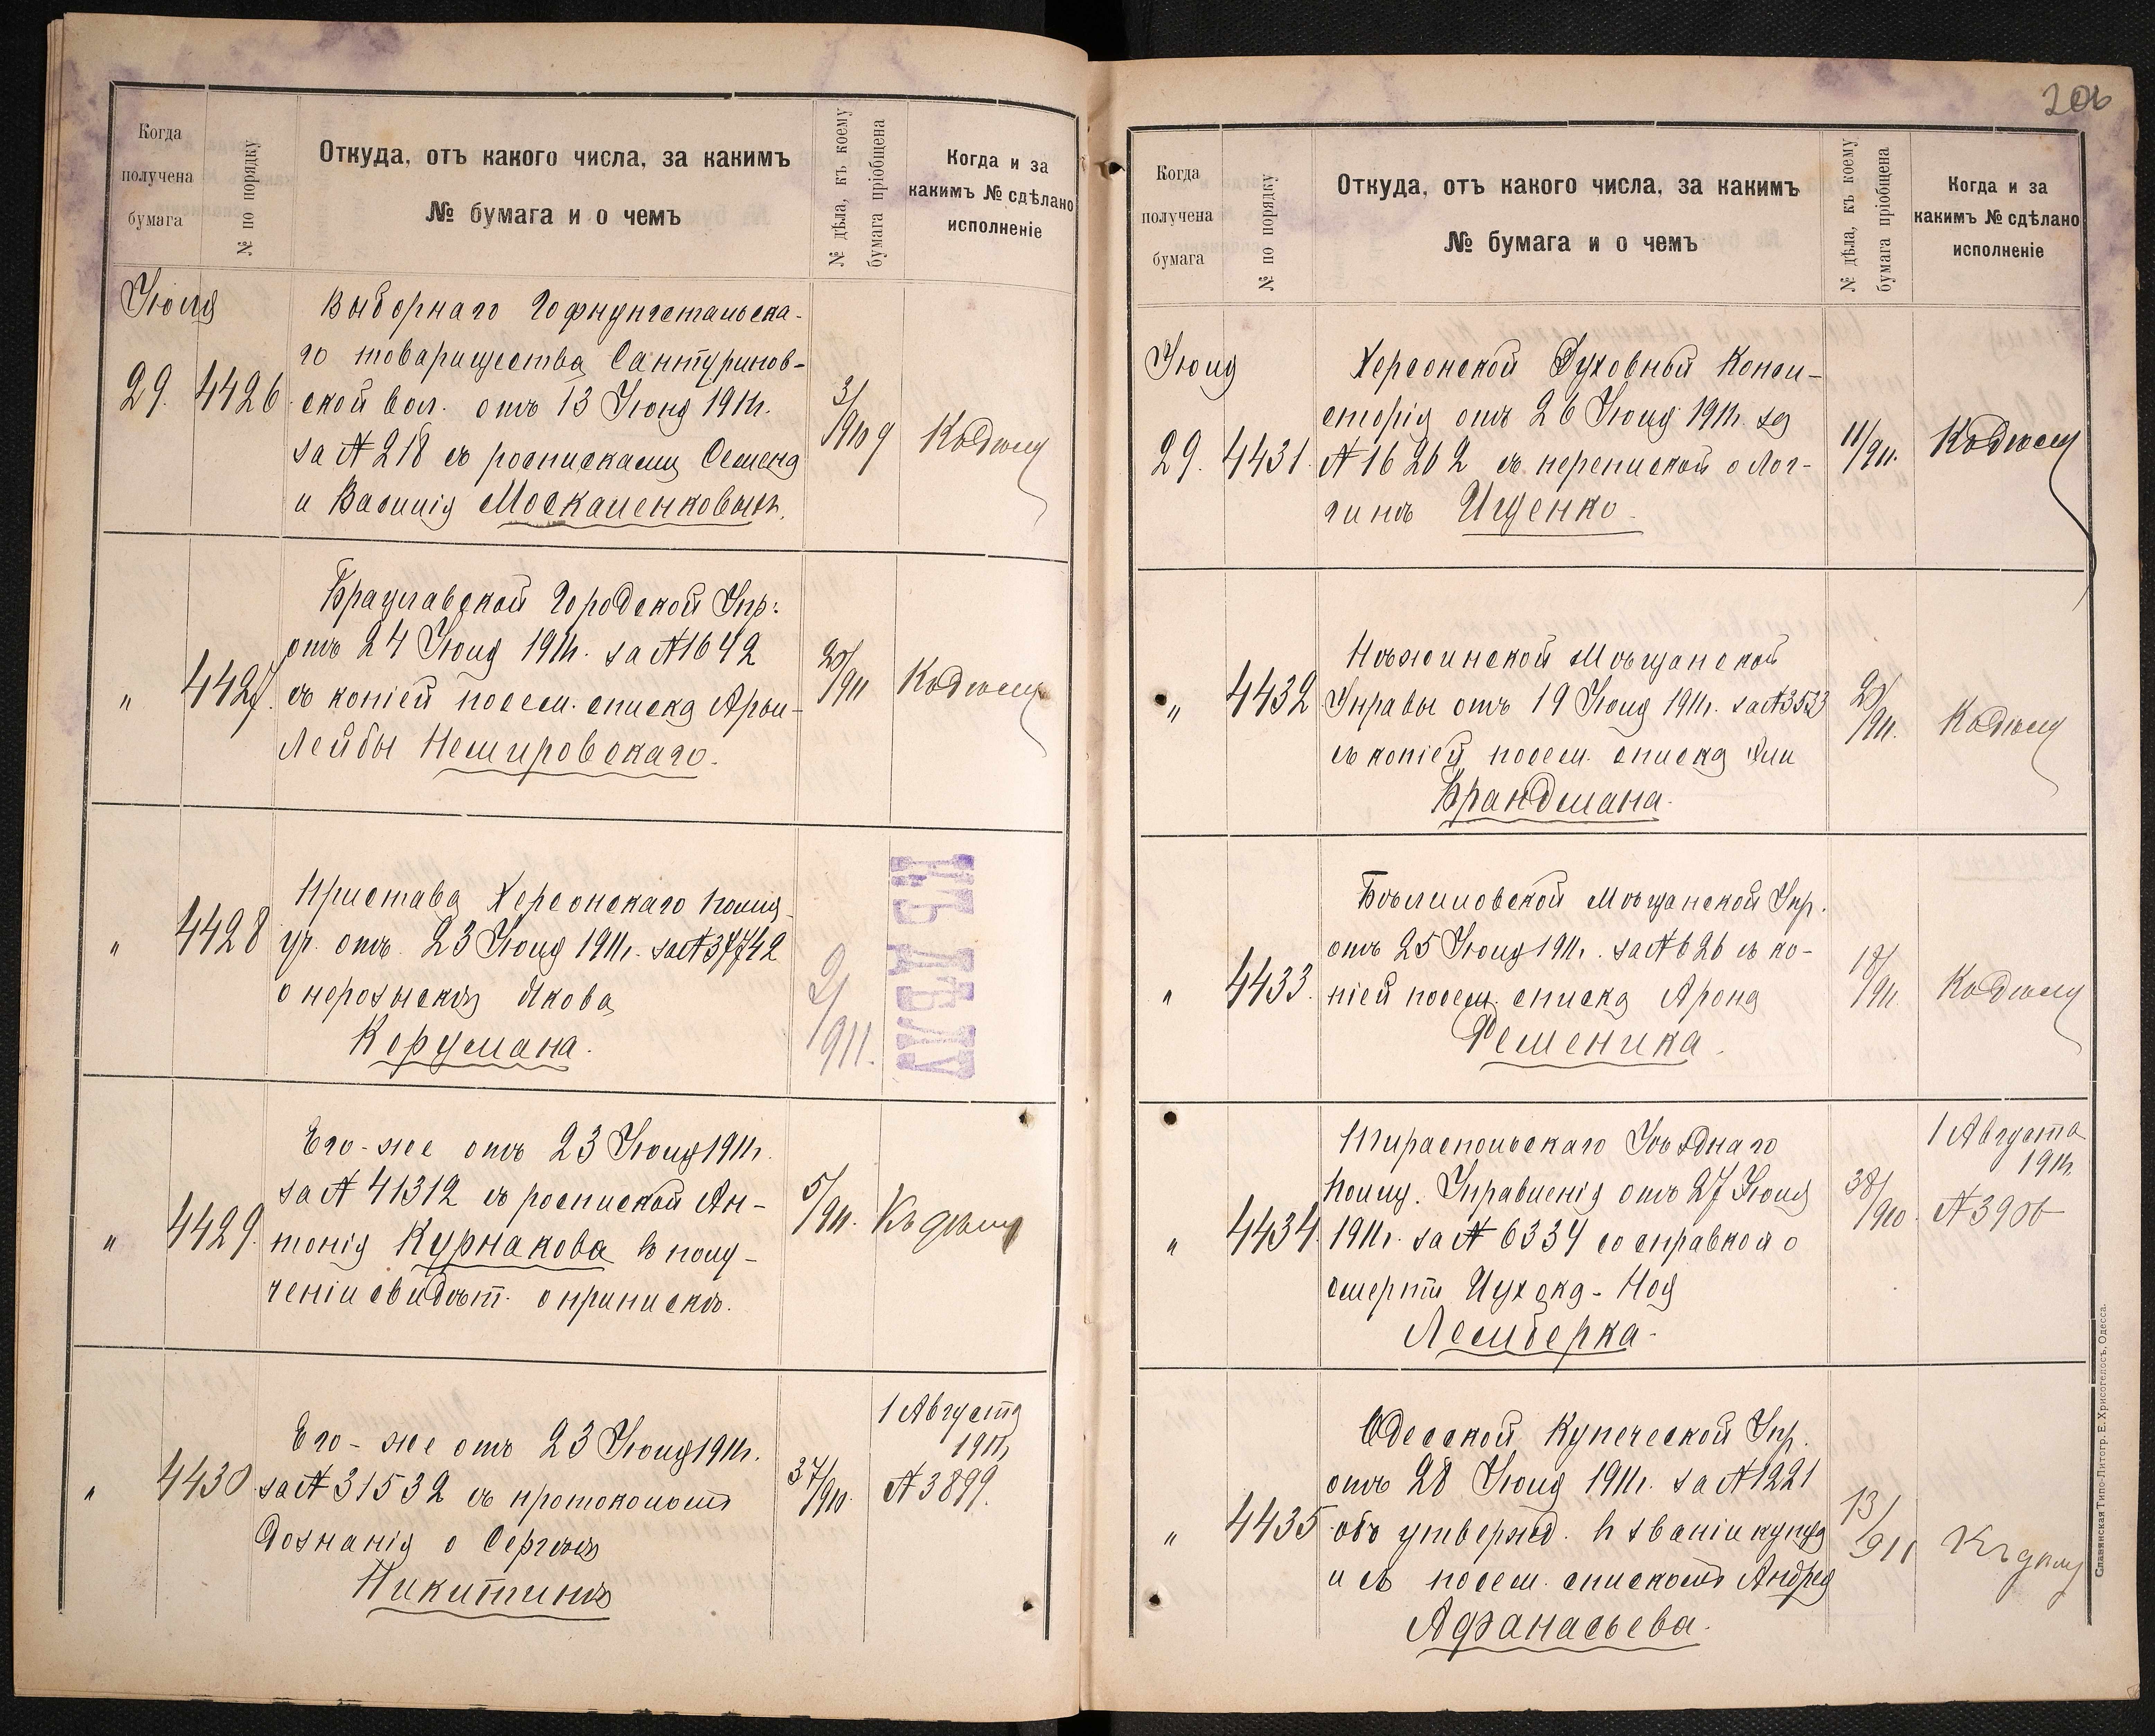 Когда
получена
бумага
№ по порядку
Откуда, отъ какого числа, за какимъ
№ бумага и о чемъ
№ дѣла, къ коему
бумага пріобщена
Когда и за
какимъ № сдѣлано
исполненіе
Іюля
29. 4426.
Выборнаго Гофнунгстальска-
го товарищества Сантуринов-
ской вол. отъ 13 Іюня 1911г.
за № 218 съ росписками Семена
и Василія Москаленковыхъ.
3/1910 г
Къ дѣлу
" 4427.
Брацлавской Городской Упр:
отъ 24 Іюля 1911г. за № 1642
съ копіей посем. списка Арьи-
Лейбы Немировскаго.
20/911
Къ дѣлу
" 4428
Пристава Херсонскаго полиц.
уч. отъ 23 Іюля 1911г. за № 37742
о нерозыскѣ Якова
Корумана.
2/911.
КЪ ДѢЛУ
" 4429.
Его-же отъ 23 Іюля 1911г.
за № 41312 съ роспиской Ан-
тонія Курнакова въ полу-
ченіи свидѣт. о припискѣ.
5/911.
Къ дѣлу
" 4430
Его-же отъ 23 Іюля 1911г.
за № 31532 съ протоколомъ
дознанія о Сергѣѣ
Никитинѣ
37/910.
1 Августа
1911г.
№ 3899.
206
Когда
получена
бумага
№ по порядку
Откуда, отъ какого числа, за какимъ
№ бумага и о чемъ
№ дѣла, къ коему
бумага пріобщена
Когда и за
какимъ № сдѣлано
исполненіе
Іюля
29. 4431.
Херсонской Духовный Конси-
сторія отъ 26 Іюля 1911г. за
№ 16262 съ перепиской о Лог-
гинѣ Ищенко.
11/911.
Къ дѣлу
" 4432
Нѣжинской Мѣщанской
Управы отъ 19 Іюля 1911г. за № 3533
съ копіей посем. списка
Брандмана.
20/911.
Къ дѣлу
" 4433.
Бѣлиловской Мѣщанской Упр.
отъ 25 Іюля 1911г. за № 626 съ ко-
піей посем. списка Арона
Фельденика.
18/911.
Къ дѣлу
" 4434.
Тираспольскаго Уѣзднаго
Полиц. Управленія отъ 27 Іюля
1911г. за № 6334 со справкой о
смерти Ноя
Лемберка.
38/910.
1 Августа
1911г.
№ 3906
" 4435
Одесской Купеческой Упр.
отъ 28 Іюля 1911г. за № 1221
объ утвержд. въ званіи купца
и съ посем. спискомъ Андрея
Афанасьева.
13/911
Къ дѣлу
Славянская Типо-Литогр. Е. Хрисогелосъ, Одесса.